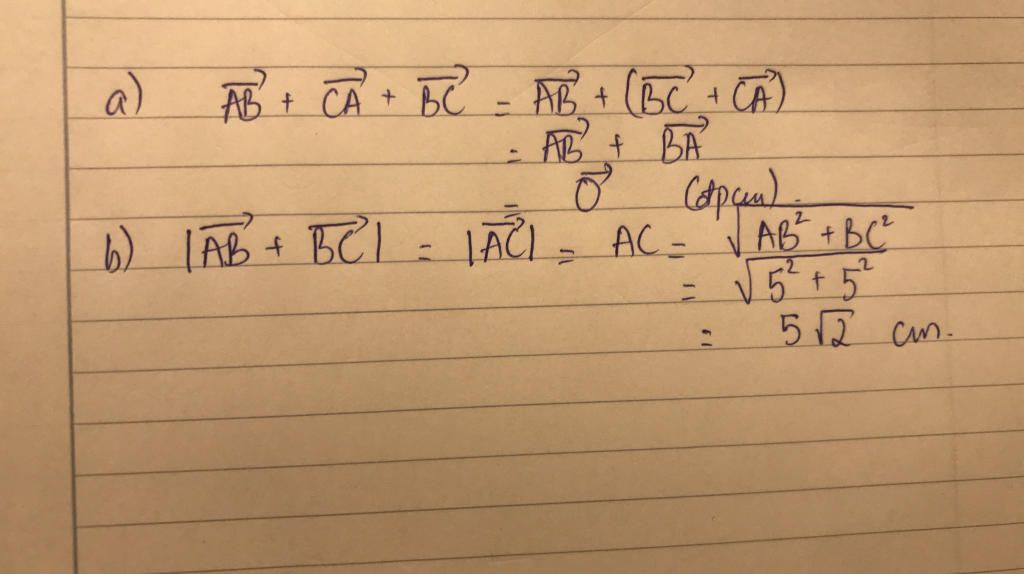 a) $\overrightarrow{AB} + \overrightarrow{CA} + \overrightarrow{BC} = \overrightarrow{AB} + (\overrightarrow{BC} + \overrightarrow{CA})$
$= \overrightarrow{AB} + \overrightarrow{BA}$
$= \overrightarrow{O}$ (đpcm).
b) $|\overrightarrow{AB} + \overrightarrow{BC}| = |\overrightarrow{AC}| = AC = \sqrt{AB^2 + BC^2}$
$= \sqrt{5^2 + 5^2}$
$= 5\sqrt{2}$ cm.